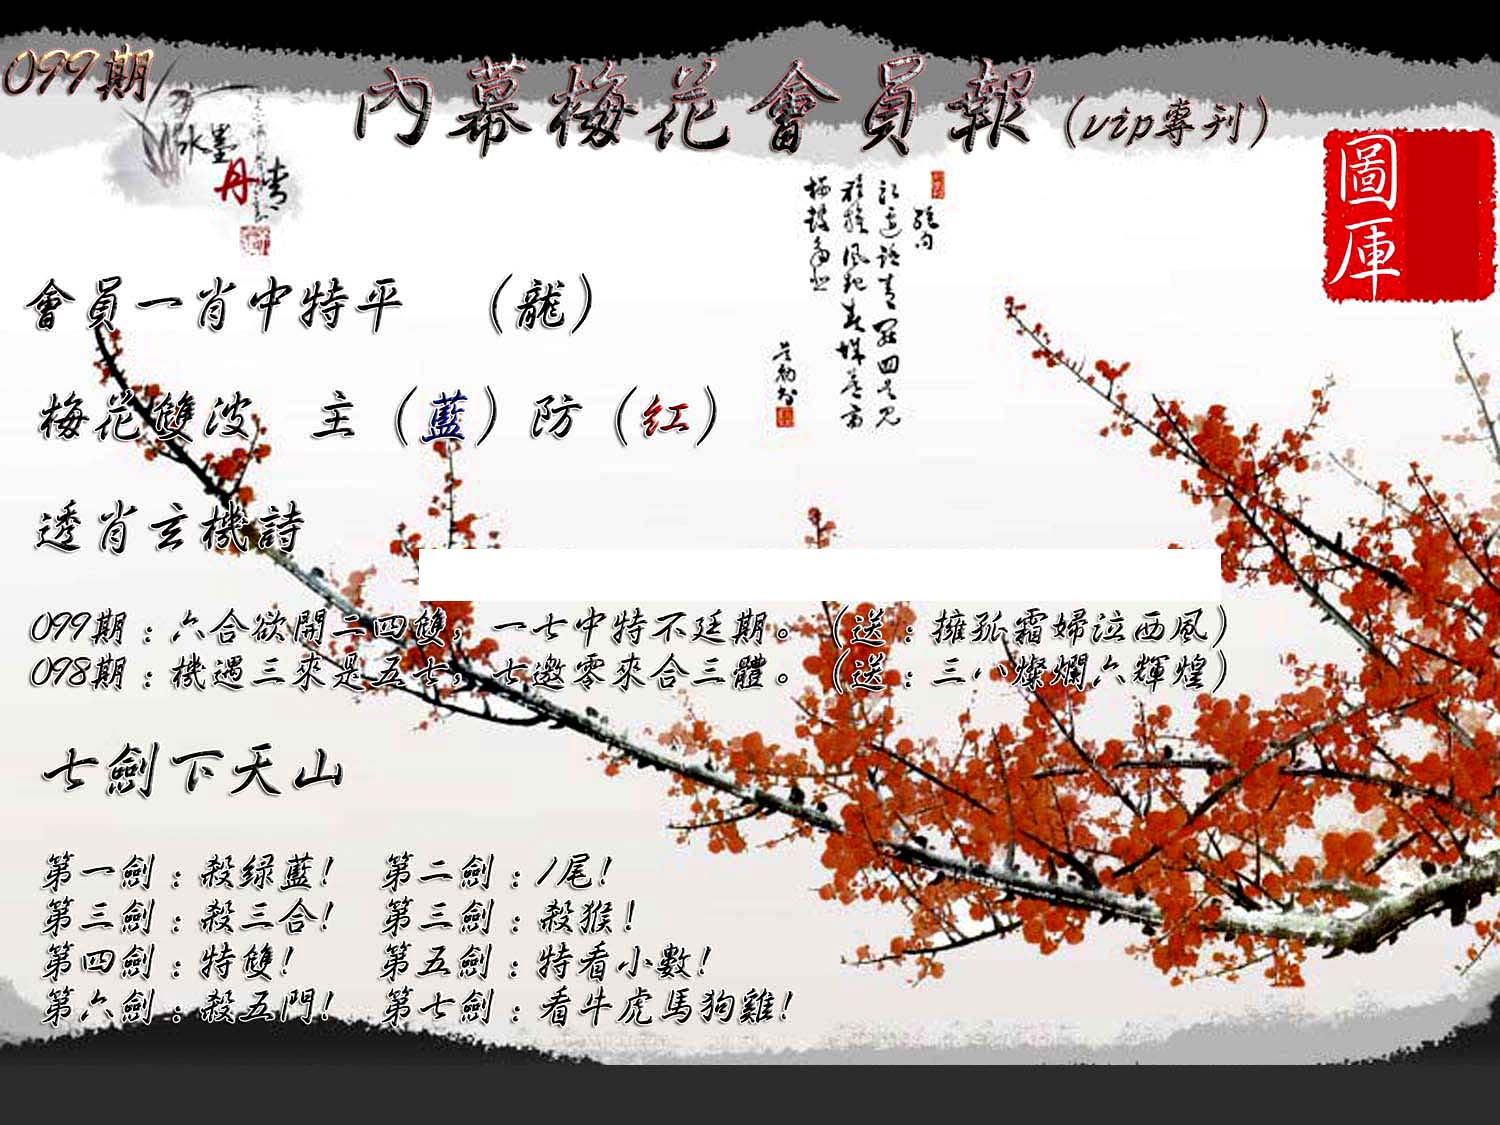 099期
內幕梅花會員報(vip專刊)
水墨
丹青
圖庫
會員一肖中特平 (龍)
梅花雙波 主(藍)防(紅)
透肖玄機詩
099期:六合欲開二四雙,一七中特不廷期。(送:擁孤霜婦泣西風)
098期:機遇三來是五七,七邀零來合三體。(送:三八燦爛六輝煌)
七劍下天山
第一劍:殺绿藍! 第二劍:1尾!
第三劍:殺三合! 第三劍:殺猴!
第四劍:特雙! 第五劍:特看小數!
第六劍:殺五門! 第七劍:看牛虎馬狗雞!